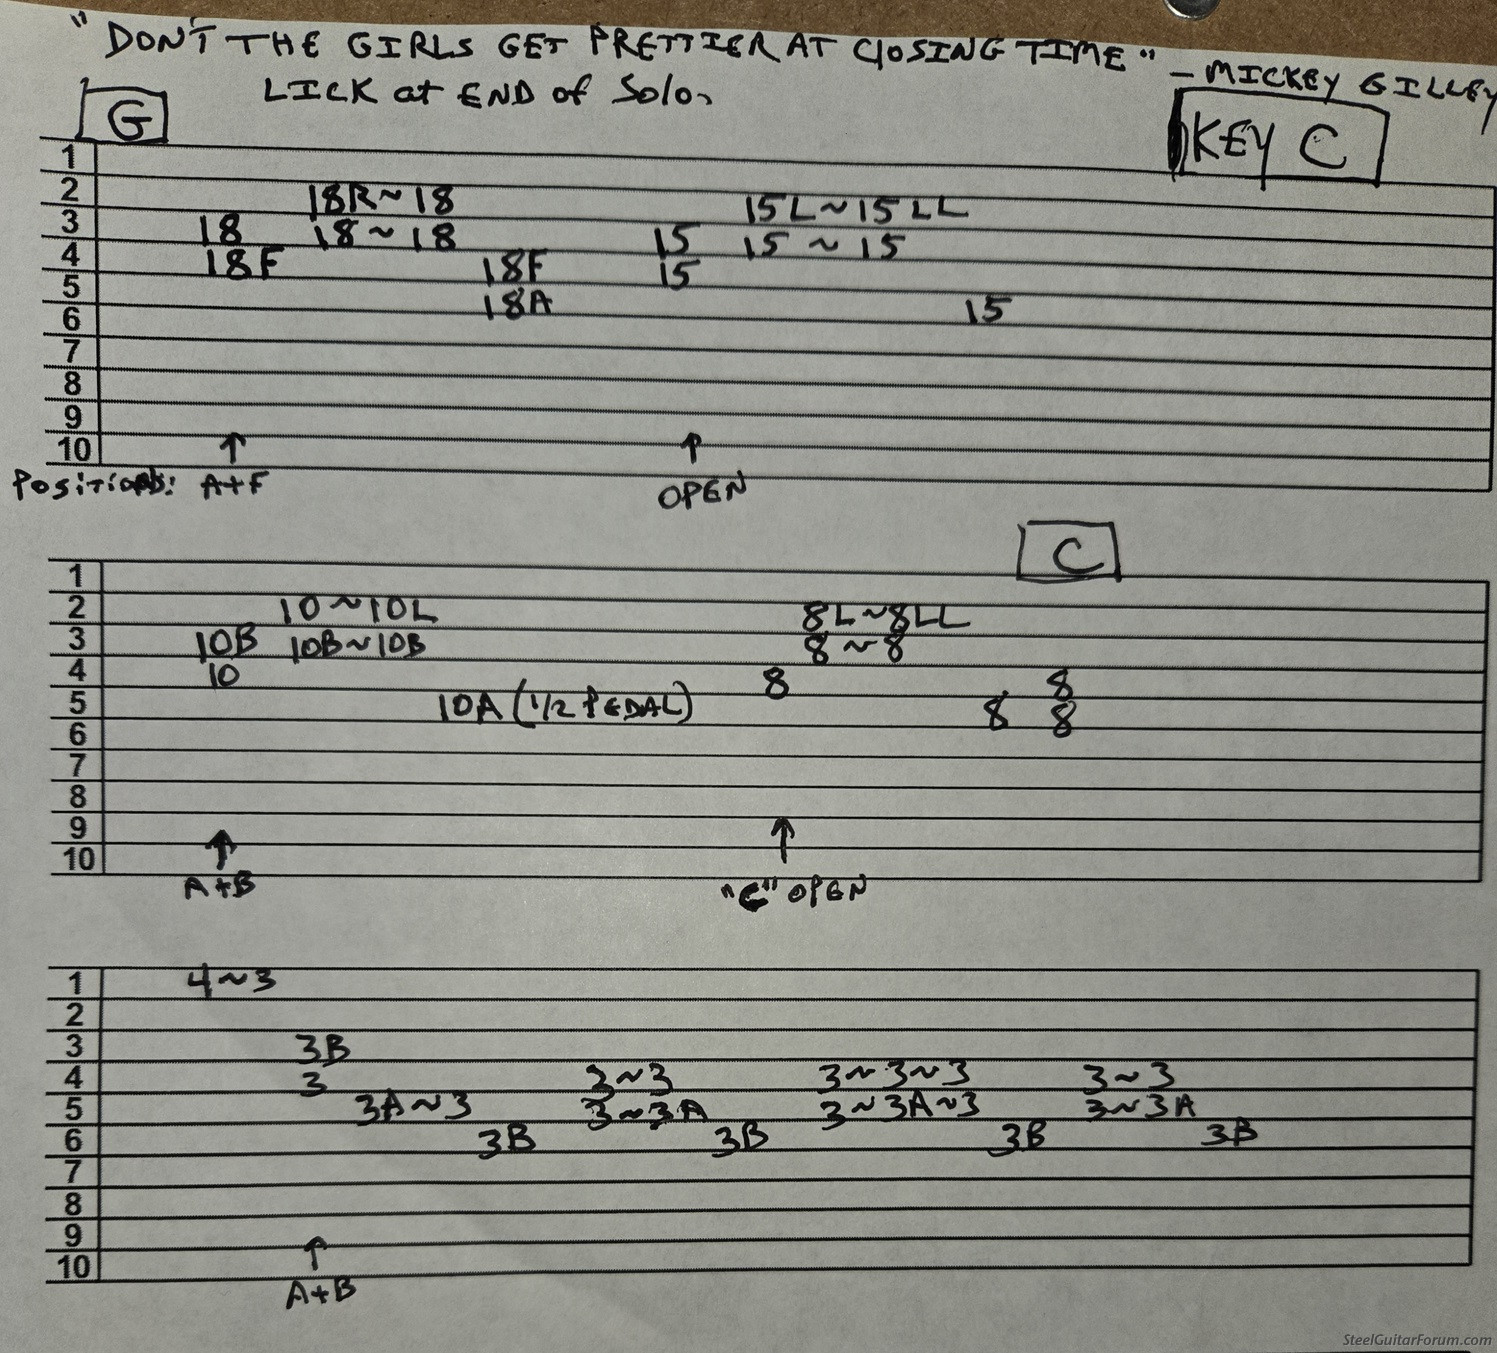 "DON'T THE GIRLS GET PRETTIER AT CLOSING TIME" - MICKEY GILLEY
LICK at END of Solo.
G
KEY C
1
2 18R~18 15L~15LL
3 18 18~18 15 15~15
4 18F 18F 15
5 18A
6 15
7
8
9
10
Positions: A+F OPEN
C
1
2 10~10L 8L~8LL
3 10B 10B~10B 8~8
4 10 8 8
5 10A (1/2 PEDAL) 8 8
6
7
8
9
10
A+B "C" OPEN
1 4~3
2
3 3B
4 3 3~3 3~3~3 3~3
5 3A~3 3~3A 3~3A~3 3~3A
6 3B 3B 3B 3B
7
8
9
10
A+B
SteelGuitarForum.com